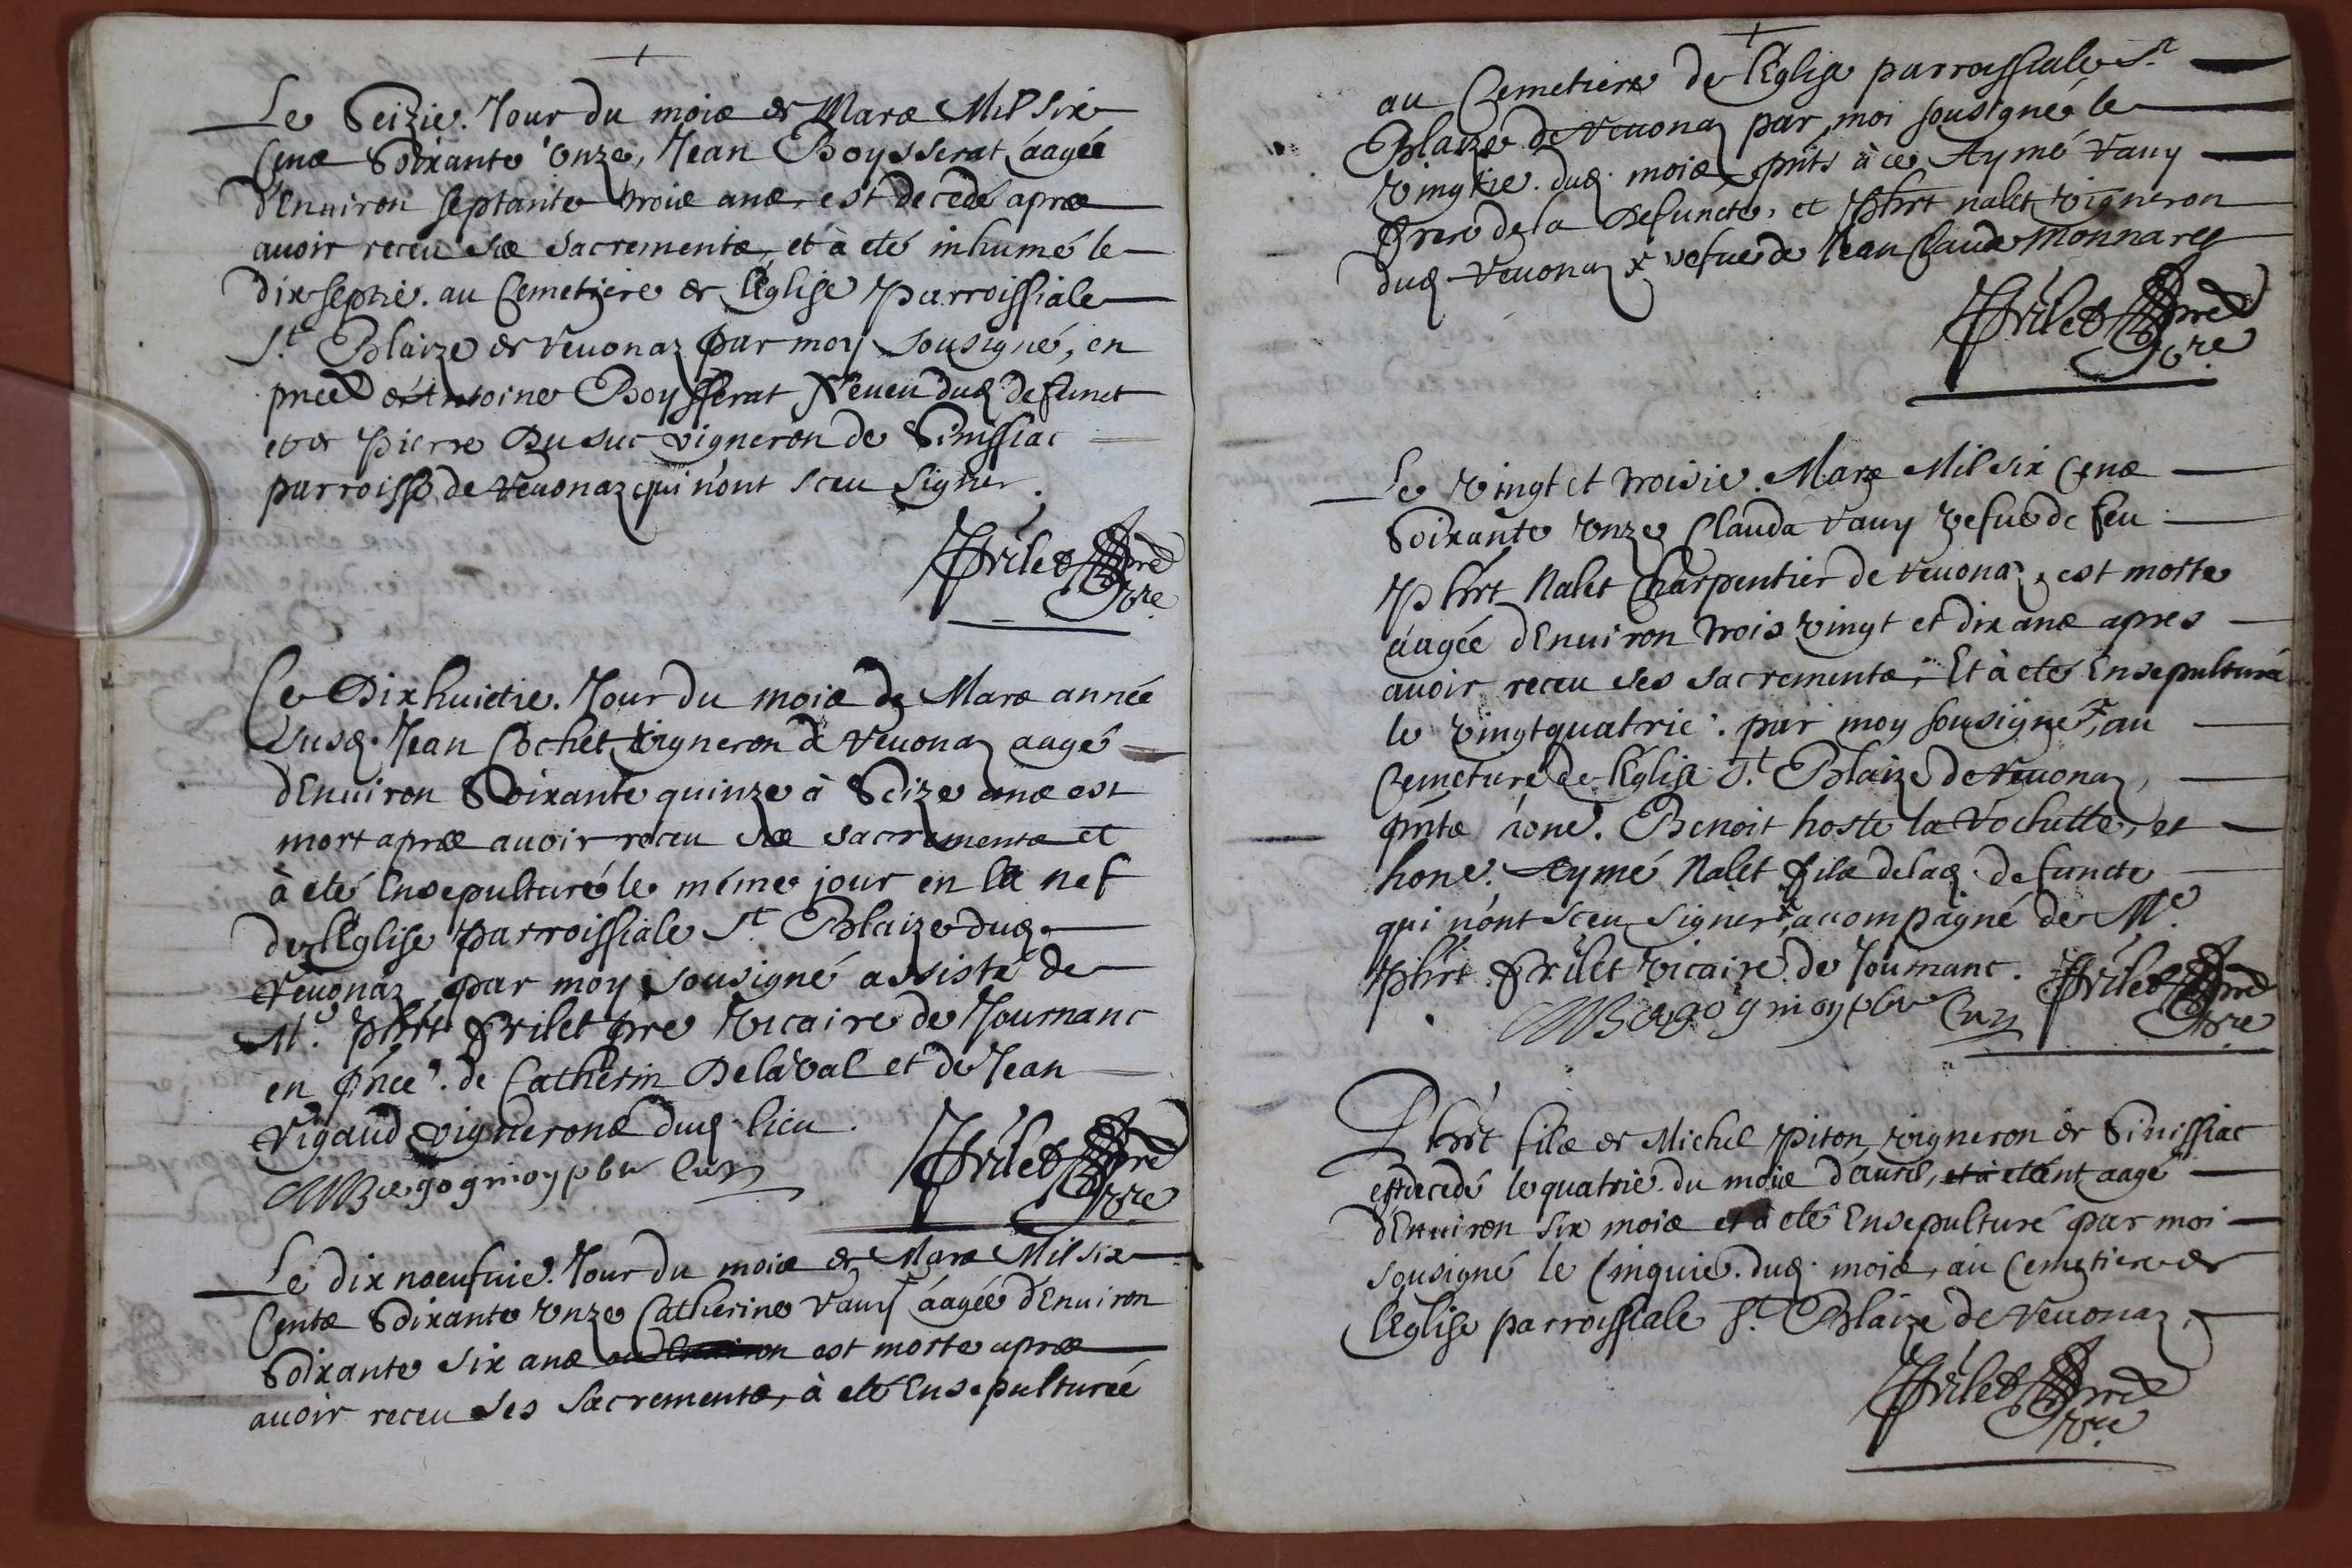 Le Seizie. Jour du mois de Mars Mil six
Cens Soixante Onze, Jean Boysserat áagée
d'Enuiron septante trois ans, est decedé apres
auoir receu ses sacrements, et à eté inhumé le
dix septie. au Cemetiere de l'Eglise Parroissiale
S.t Blaize de Veuonaz par moy sousigné, en
de Antoine Boysserat Neueu dud. defunct
et de Pierre Dusuc vigneron de Sinissiac
parroisse de Veuonaz qui n'ont sceu signer.
Frilet pre
vre
Ce Dixhuictie. Jour du mois de Mars année
susd. Jean Cochet vigneron de Veuonaz aagé
d'Enuiron Soixante quinze à Seize ans est
mort apres auoir receu ses sacrements et
à eté Ensepulturé le méme jour en la nef
de l'Eglise Parroissiale S.t Blaize dud.
Veuonaz, par moy sousigné assisté de
M.e phrt Frilet pre Vicaire de Journanc
en pnce. de Catherin Delaual et de Jean
Vigaud vignerons dud. lieu.
Frilet pre
vre
Le dix noeufuie. Jour du mois de Mars Mil six
Cents Soixante Onze Catherine Vauy áagée d'Enuiron
Soixante six ans est morte apres
auoir receu ses Sacrements, à eté Ensepulturée
au Cemetiere de l'Eglise parroissiale S.t
Blaize de Veuonaz par moi sousigné le
Vingtie. dud. mois, pnts à ce Aymé Vauy
frere de la Defuncte, et Phrt nalet vigneron
dud. Veuonaz x vefue de Jean Claude Monnaret
Frilet pre
vre.
Le Vingt et troisie. Mars Mil six Cens
Soixante Onze Clauda Vauy Vefue de feu
Phrt Nalet Charpentier de Veuonaz, est morte
áagée d'Enuiron trois Vingt et dix ans apres
auoir receu ses sacrements, Et à eté Ensepulturée
le Vingtquatrie. par moy sousigné, au
Cemeture de l'Eglise S.t Blaize de Veuonaz,
pnts hone. Benoit hoste la Vochette, et
hone. Aymé Nalet fils de lad. defuncte
qui n'ont sceu signer, acompagné de M.e
Phrt Frilet Vicaire de Journanc. Frilet pre
vre
Phrt fils de Michel Piton, vigneron de Sinissiac
est decedé le quatrie. du mois d'auril, et à etént aagé
d'Enuiron six mois et à eté Ensepulturé par moi
sousigné le Cinquie. dud. mois, au Cemetiere de
l'Eglise parroissiale S.t Blaize de Veuonaz,
Frilet pre
vre.